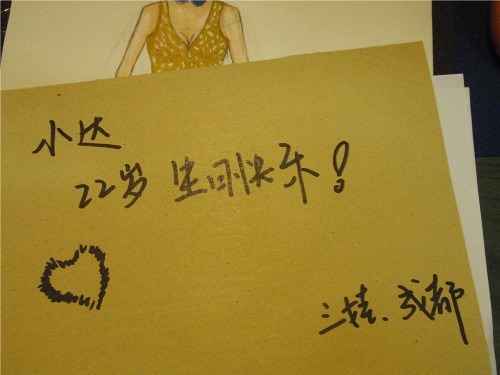 小达
22岁 生日快乐！
三娃、成都